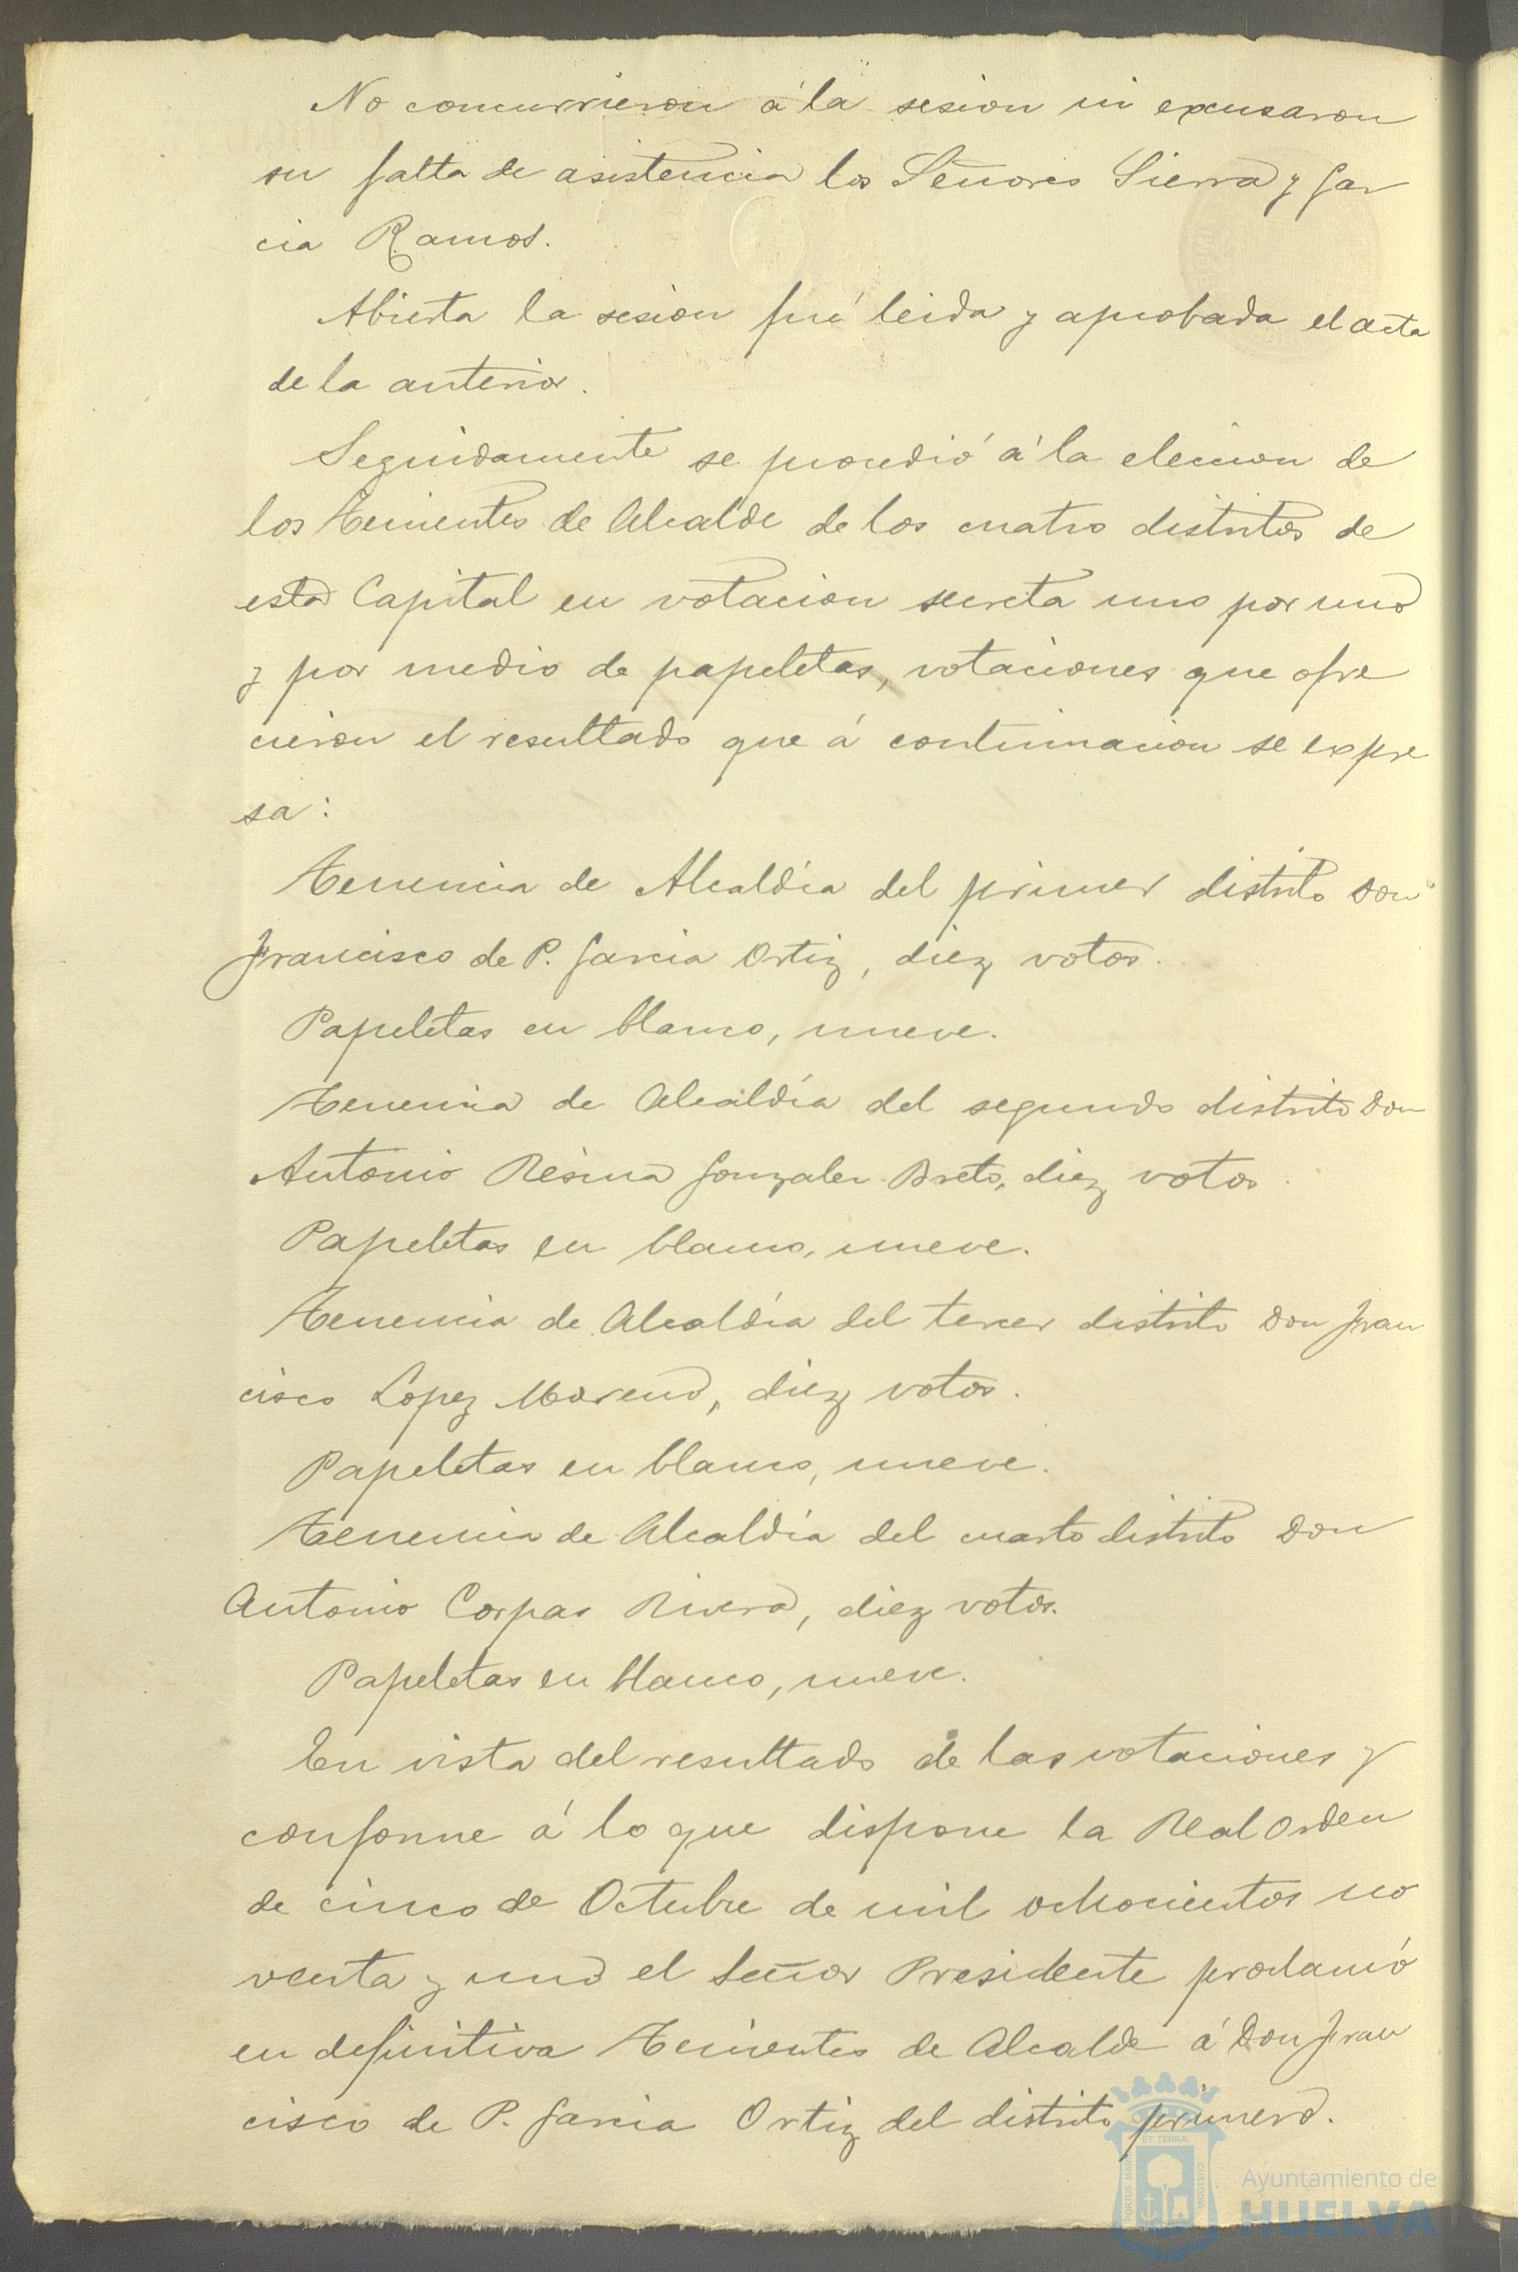 No concurrieron á la sesion ni excusaron
su falta de asistencia los Señores Sierra y Gar
cia Ramos.
Abierta la sesion fué leida y aprobada el acta
de la anterior.
Seguidamente se procedió á la eleccion de
los Tenientes de Alcalde de los cuatro distritos de
esta Capital en votacion secreta uno por uno
y por medio de papeletas, votaciones que ofre
cieron el resultado que á continuacion se expre
sa:
Tenencia de Alcaldía del primer distrito Don
Francisco de P. Garcia Ortiz, diez votos.
Papeletas en blanco, nueve.
Tenencia de Alcaldía del segundo distrito Don
Antonio Gonzalez diez votos.
Papeletas en blanco, nueve.
Tenencia de Alcaldía del tercer distrito Don Fran
cisco Lopez Moreno, diez votos.
Papeletas en blanco, nueve.
Tenencia de Alcaldía del cuarto distrito Don
Antonio Corpas Rivera, diez votos.
Papeletas en blanco, nueve.
En vista del resultado de las votaciones y
conforme á lo que dispone la Real Orden
de cinco de Octubre de mil ochocientos no
venta y uno el Señor Presidente proclamó
en definitiva Tenientes de Alcalde á Don Fran
cisco de P. Garcia Ortiz del distrito primero.
Ayuntamiento de
HUELVA